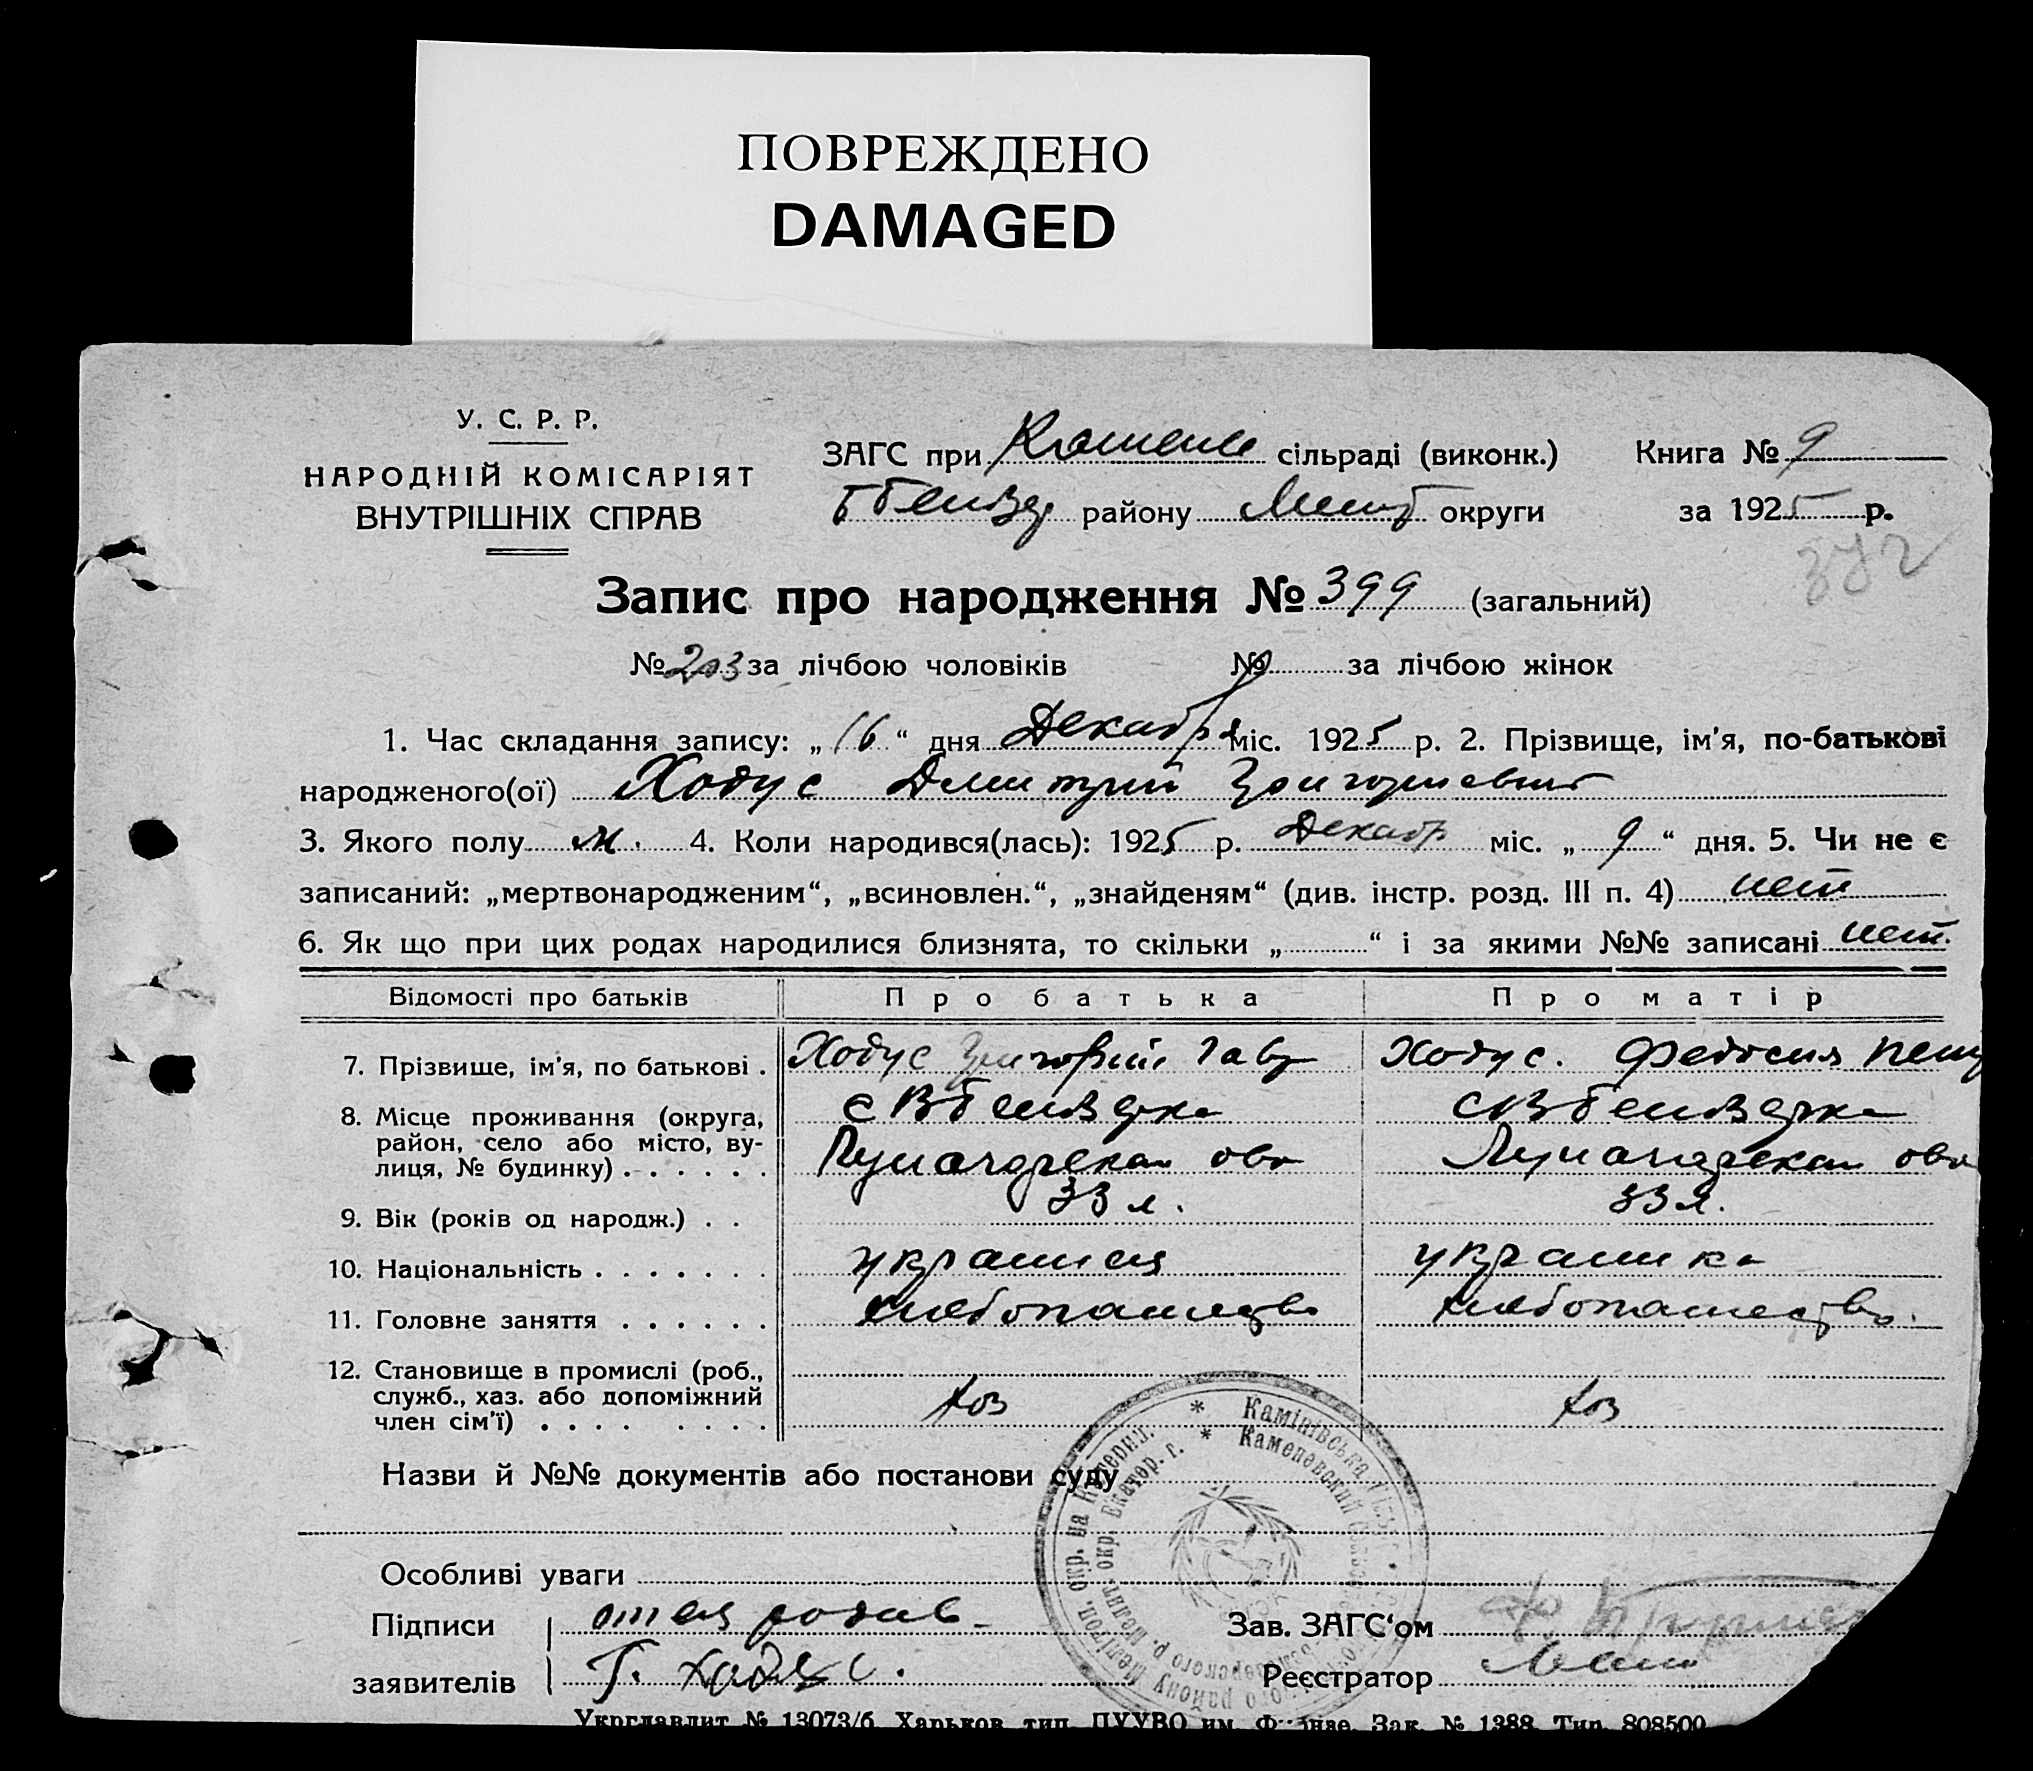 ПОВРЕЖДЕНО
DAMAGED
У. С. Р. Р.
НАРОДНІЙ КОМІСАРІЯТ
ВНУТРІШНІХ СПРАВ
ЗАГС при Камене сільраді (виконк.)
району Мелит округи
Книга № 9
за 1925 р.
Запис про народження № 399 (загальний)
№ 203 за лічбою чоловіків № за лічбою жінок
1. Час складання запису: „16“ дня Декабр міс. 1925 р. 2. Прізвище, ім'я, по-батькові
народженого(ої) Ходус Дмитрий Григориевич
3. Якого полу м. 4. Коли народився(лась): 1925 р. Декабр міс. „9“ дня. 5. Чи не є
записаний: „мертвонародженим“, „всиновлен.“, „знайденям“ (див. інстр. розд. III п. 4) нет
6. Як що при цих родах народилися близнята, то скільки „ “ і за якими №№ записані нет.
Відомості про батьків Про батька Про матір
7. Прізвище, ім'я, по батькові . Ходус Григорий Гавр Ходус. Федосия
8. Місце проживання (округа,
район, село або місто, ву-
лиця, № будинку) . . . . . .
9. Вік (років од народж.) . . 33 л. 33 л.
10. Національність . . . . . . . украинец украинка
11. Головне заняття . . . . . . хлебопашество хлебопашество.
12. Становище в промислі (роб.,
служб., хаз. або допоміжний
член сім'ї) . . . . . . . . хоз хоз
Назви й №№ документів або постанови суду
Особливі уваги
Підписи отец
заявителів Г. Ходус.
Зав. ЗАГС'ом
Реєстратор
* Камінівська
* Каменевский
Укрглавлит № 13073/6. Харьков, тип. ПУУВО им. Фрунзе. Зак. № 1388. Тир. 808500